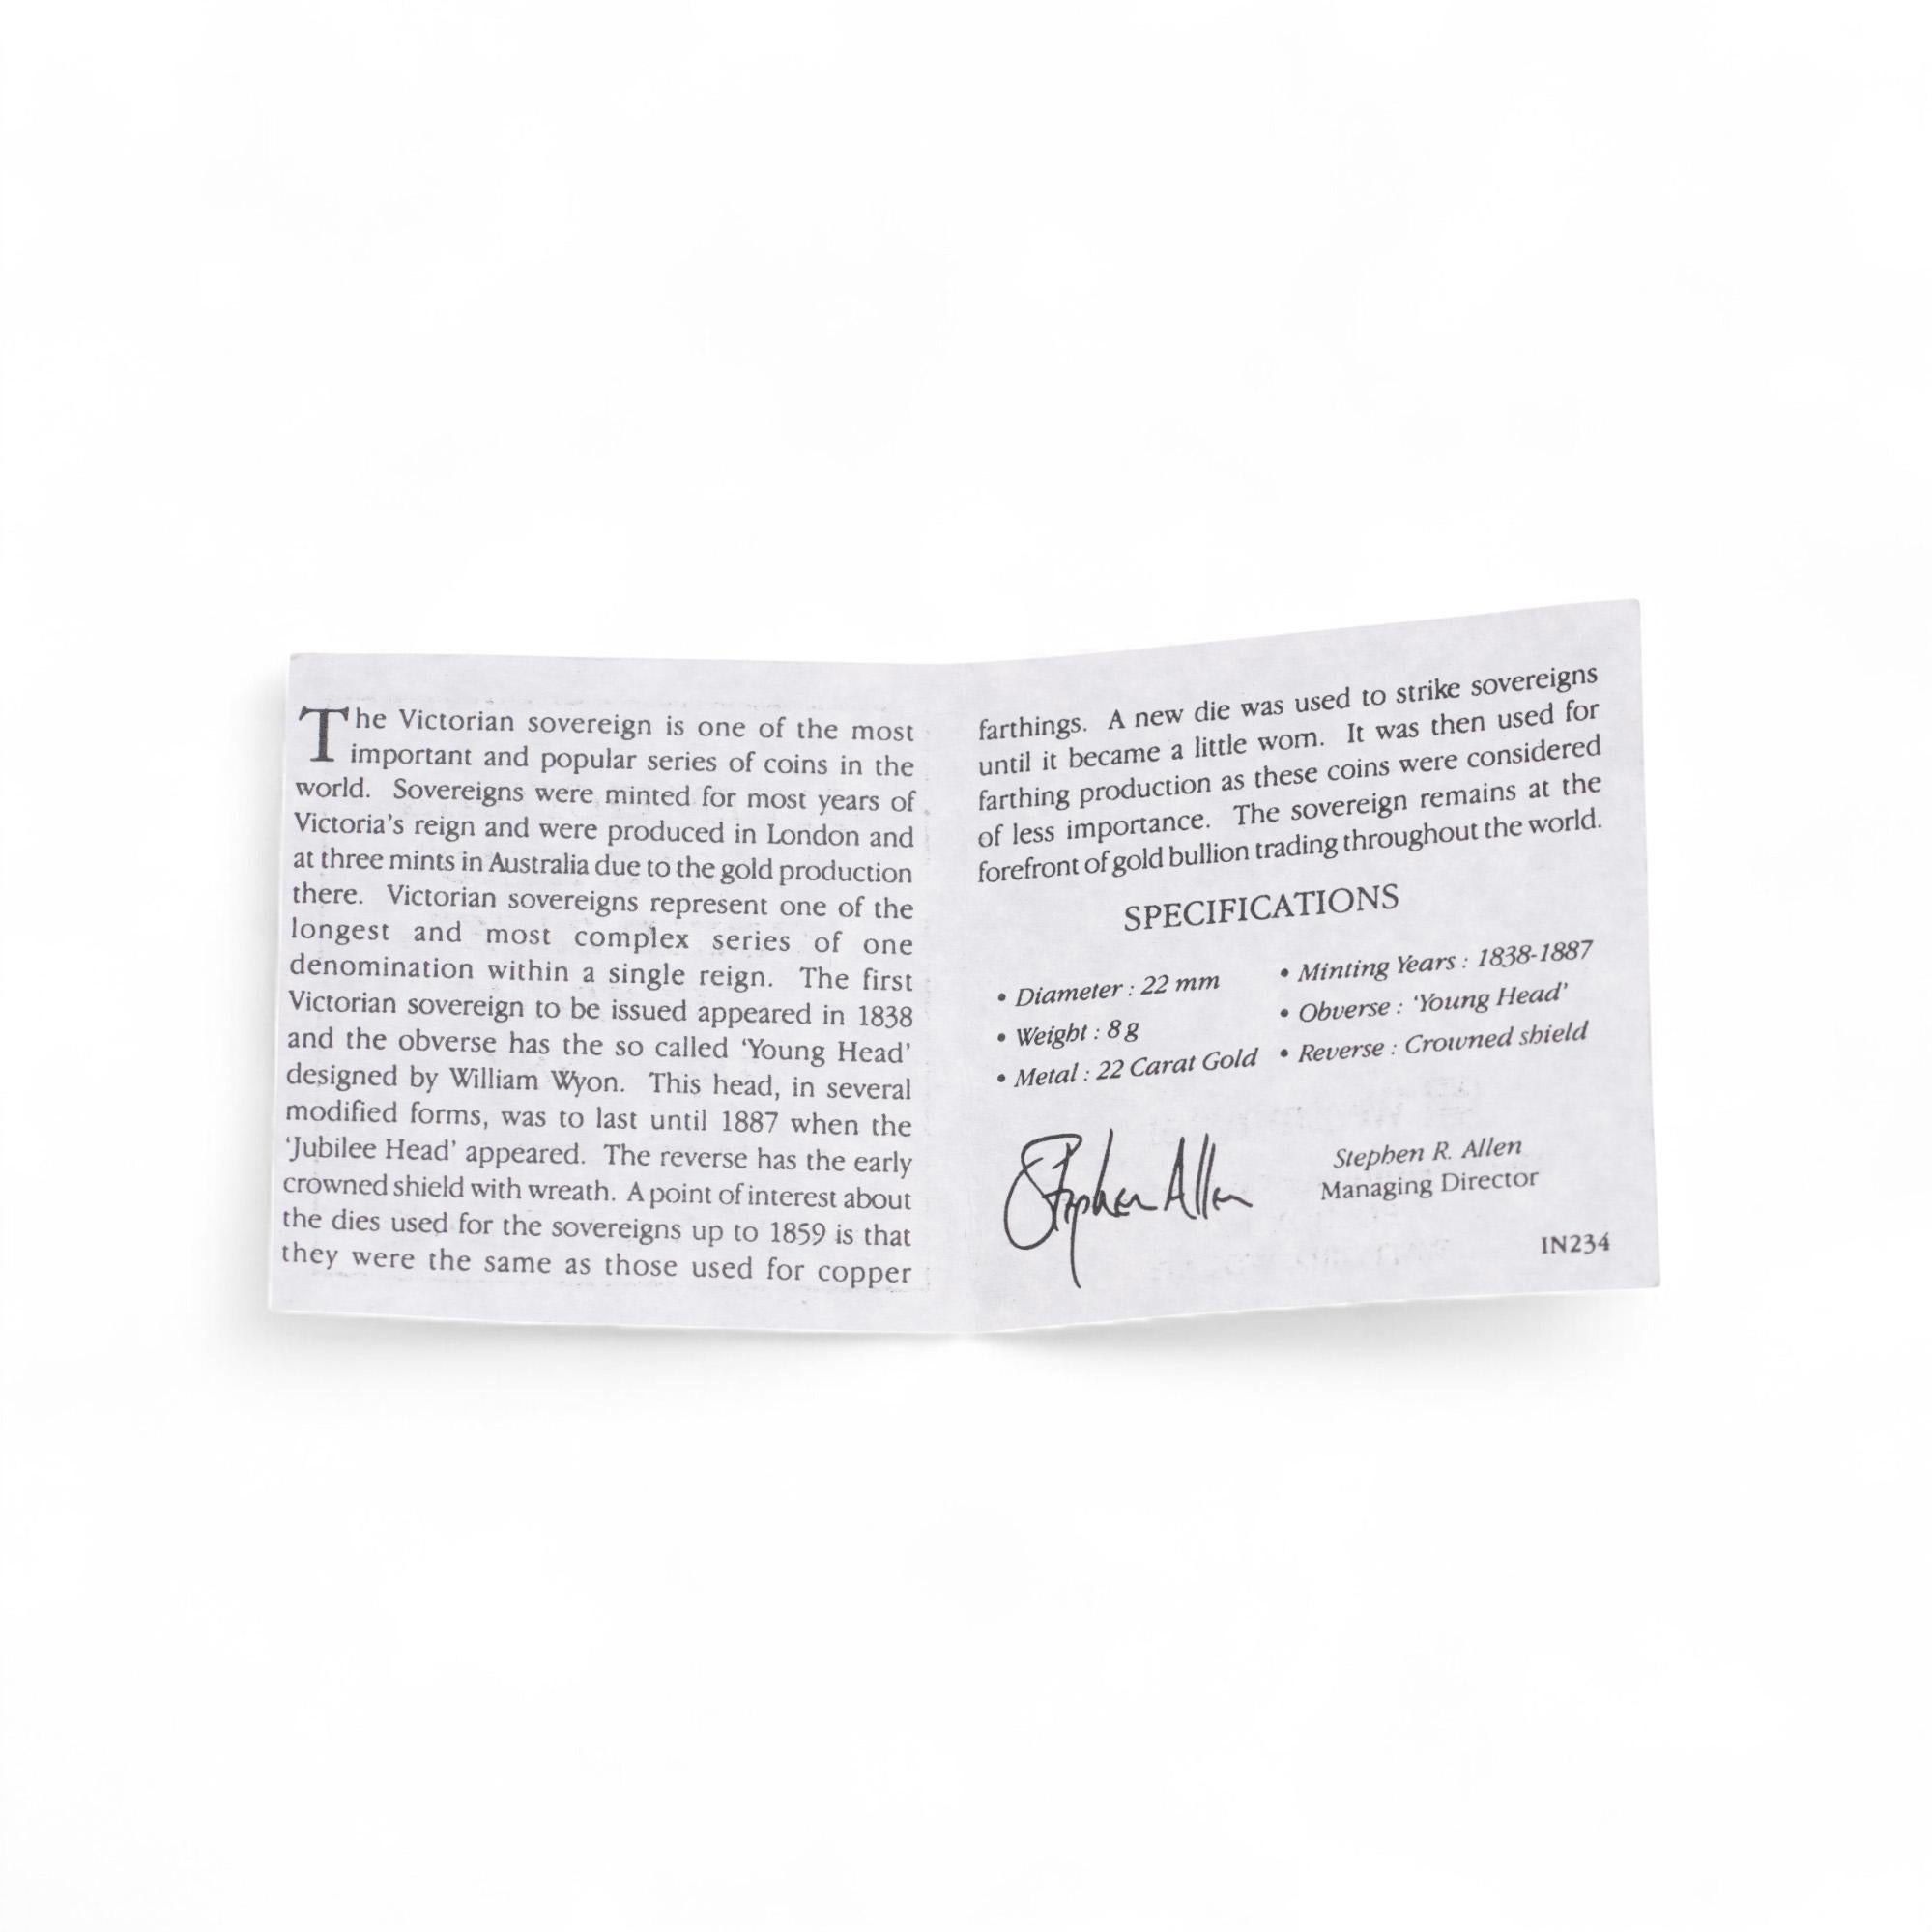 The Victorian sovereign is one of the most
important and popular series of coins in the
world. Sovereigns were minted for most years of
Victoria's reign and were produced in London and
at three mints in Australia due to the gold production
there. Victorian sovereigns represent one of the
longest and most complex series of one
denomination within a single reign. The first
Victorian sovereign to be issued appeared in 1838
and the obverse has the so called 'Young Head'
designed by William Wyon. This head, in several
modified forms, was to last until 1887 when the
'Jubilee Head' appeared. The reverse has the early
crowned shield with wreath. A point of interest about
the dies used for the sovereigns up to 1859 is that
they were the same as those used for copper
farthings. A new die was used to strike sovereigns
until it became a little worn. It was then used for
farthing production as these coins were considered
of less importance. The sovereign remains at the
forefront of gold bullion trading throughout the world.
SPECIFICATIONS
• Diameter : 22 mm
• Weight : 8 g
• Metal : 22 Carat Gold
• Minting Years : 1838-1887
• Obverse : 'Young Head'
• Reverse : Crowned shield
Stephen Allen
Stephen R. Allen
Managing Director
IN234